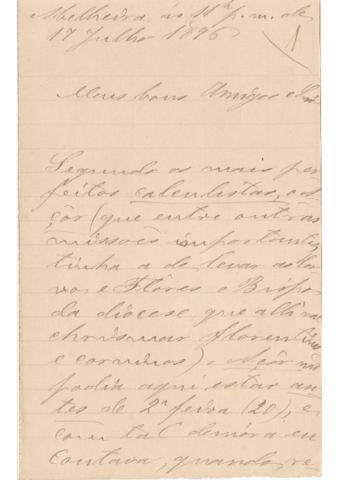 Abelheira ás 11h p. m. de
17 Julho 1896
Meus bons Amigos e
Segundo os mais per
feitos calculistas, o A
çôr (que entre outras
missões importantes
tinha a de levar ao Cor
vo e Flôres o Bispo
da diocese que alli vae
chrismar florentinos
e corvinos), o Açôr não
podia aqui estar an
tes de 2ª feira (20), e
com tal demóra eu
contava, quando, re